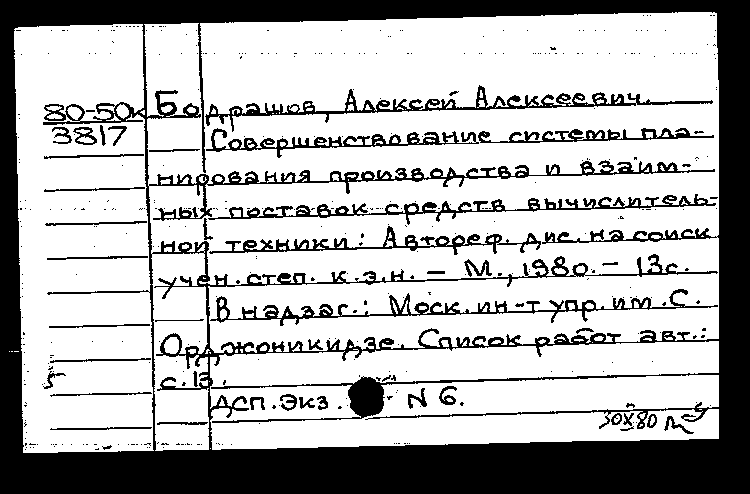 80-50к Бодрашов, Алексей Алексеевич.
3817 Совершенствование системы пла-
нирования производства и взаим-
ных поставок средств вычислитель-
ной техники: Автореф. дис. на соиск
учен. степ. к.э.н. — М., 1980. — 13с.
В надзаг.: Моск. ин-т упр. им. С.
Орджоникидзе. Список работ авт.:
с. 13.
ДСП. Экз. N 6.
30X80